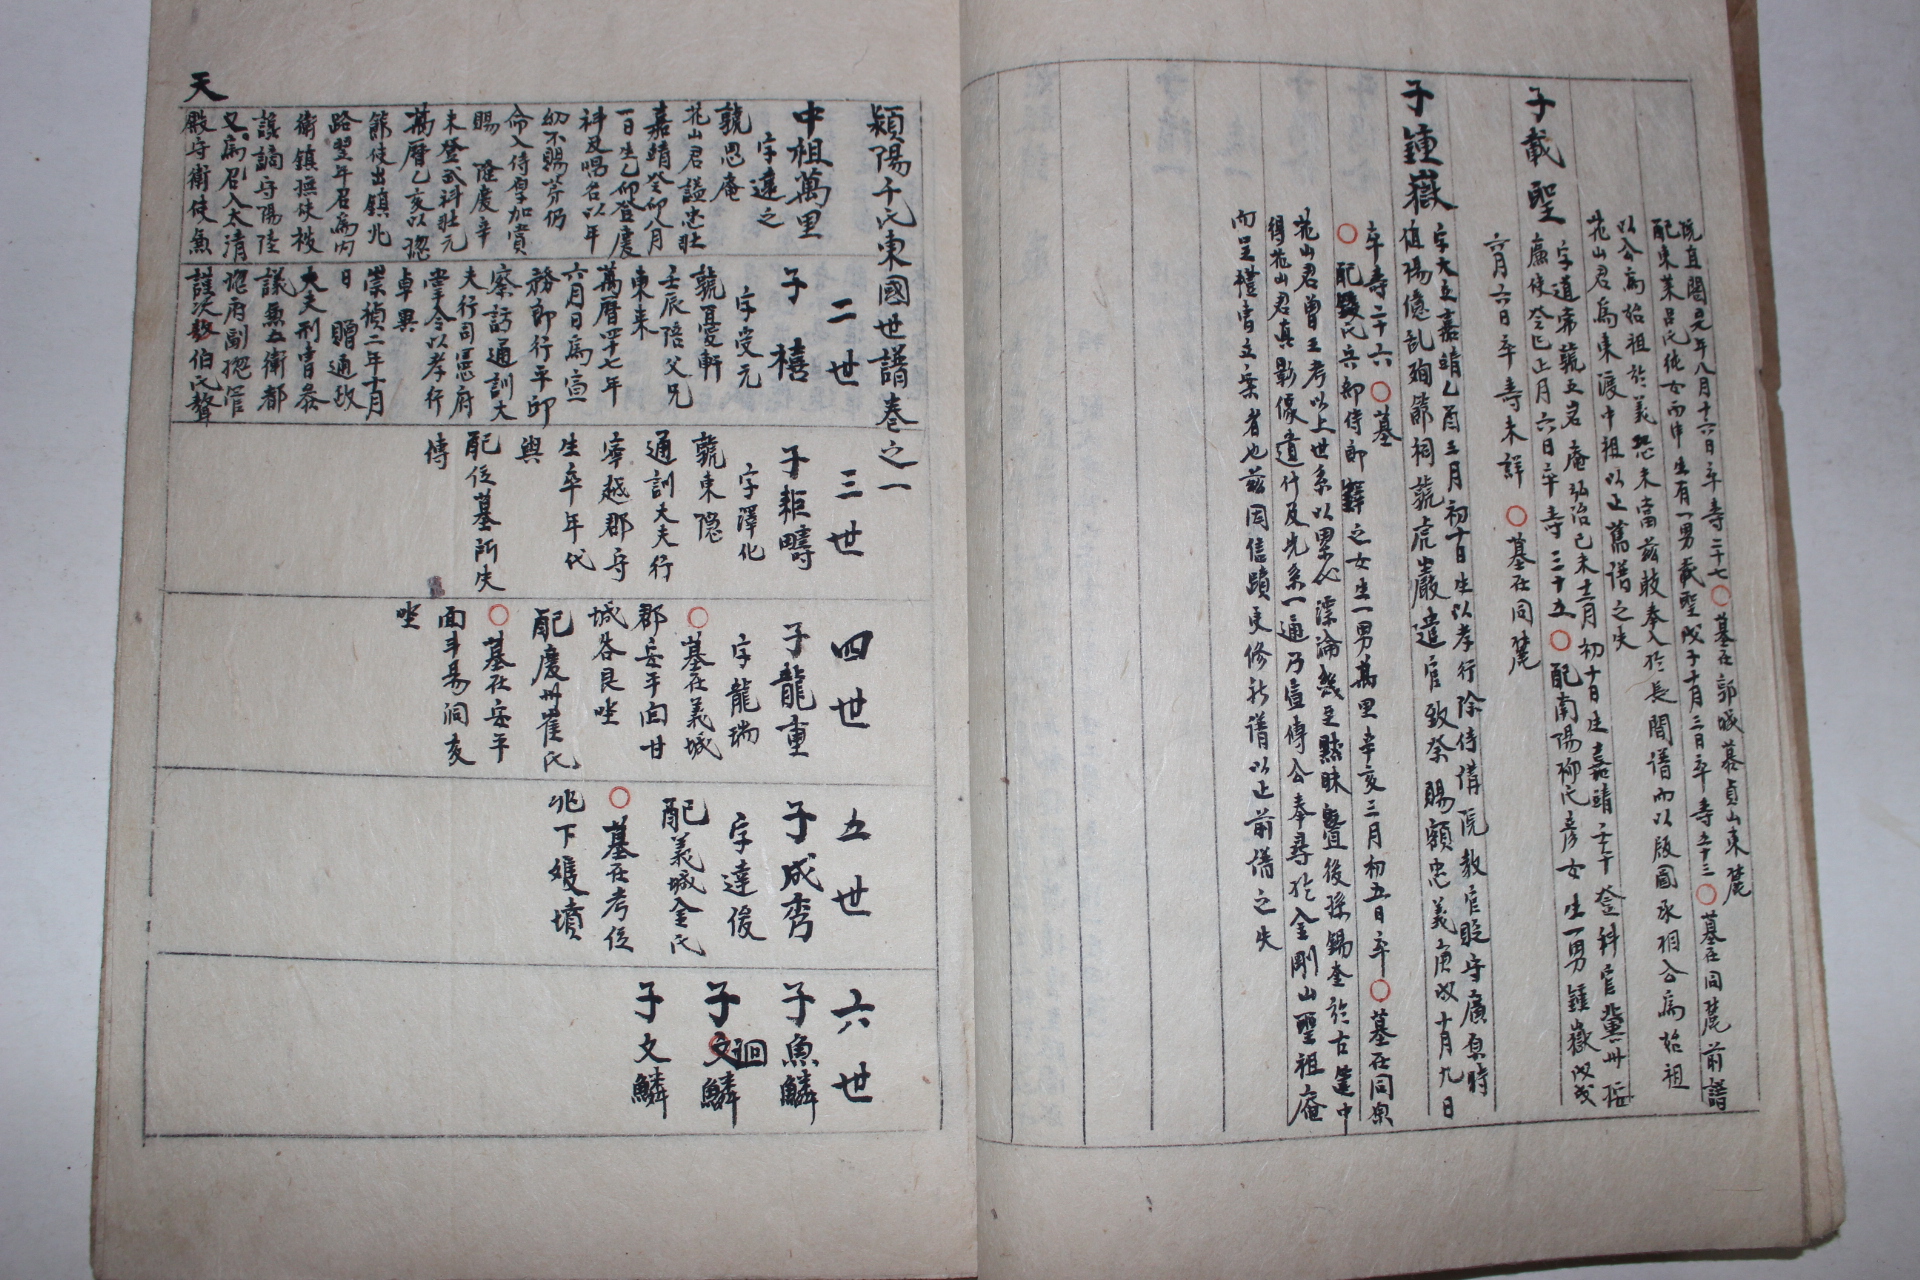 院直閣是年八月十六日卒寺二十七○墓在郭城慕貞山東麓
配東萊呂氏純女而中生有一男載聖戊子十月三日卒寺五十三○墓在同麓前譜
以公爲始祖於義恐未當玆敢奉入於長聞譜而以版圖承相公爲始祖
花山君爲東渡中祖以正舊譜之失
子載聖
字道宗號立岩庵弘治己未十二月初十日生嘉靖壬午登科官冀州按
廉使癸巳正月六日卒寺三十五○配南陽柳氏彦女生一男鍾嶽戊戌
六月六日卒寺未詳○墓在同麓
子鍾嶽
字大立嘉靖乙酉三月初十日生以孝行除侍講院教官貶守廣原時
値陽億乱殉節祠號虎巖遣官致祭賜額忠義庚戌十月九日
卒寺二十六○墓
○配錢氏兵部侍郎鐸之女生一男萬里辛亥三月初五日卒○墓在同原
花山君曾王考以上世系以累必漂淪幾至黙昧曁後孫錫奎於古篋中
得花山君眞影像遺什及先系一通乃壹傳公奉尋於金剛山聖祖庵
而呈禮曹立案者也玆因信蹟更修於譜以正前譜之失
潁陽千氏東國世譜卷之一
中祖萬里
字遠之
號思庵
花山君諡忠壯
嘉靖癸卯八月
一日生乙卯登慶
科及唱名以年
幼不賜芳仍
命入侍厚加賞
賜 隆慶辛
未登武科壯元
萬曆乙亥以揔
節使出鎮北
路翌年召爲内
衛鎮撫使被
讒謫守陽陸
又爲召入太清
殿守衛使魚
天
二世
子禧
字受元
號憂軒
壬辰陪父兄
東來
萬曆四十七年
六月日爲宣
務郎行平卽
察訪通訓大
夫行司憲府
掌令以孝行
卓異
崇禎二年十月
日 贈通政
大夫刑曹參
議兼五衛都
揔府副揔管
謹次數伯氏聱
三世
子耟疇
字澤化
號東隱
通訓大夫行
寧越郡守
生卒年代
與
配位墓所失
傳
四世
子龍重
字龍瑞
○墓在義城
郡安平面甘
城谷艮坐
配慶州崔氏
○墓在安平
面斗易洞亥
坐
五世
子成秀
字達俊
配義城金氏
○墓在考位
兆下雙墳
六世
子魚鱗
子文鱗
廻
子文鱗